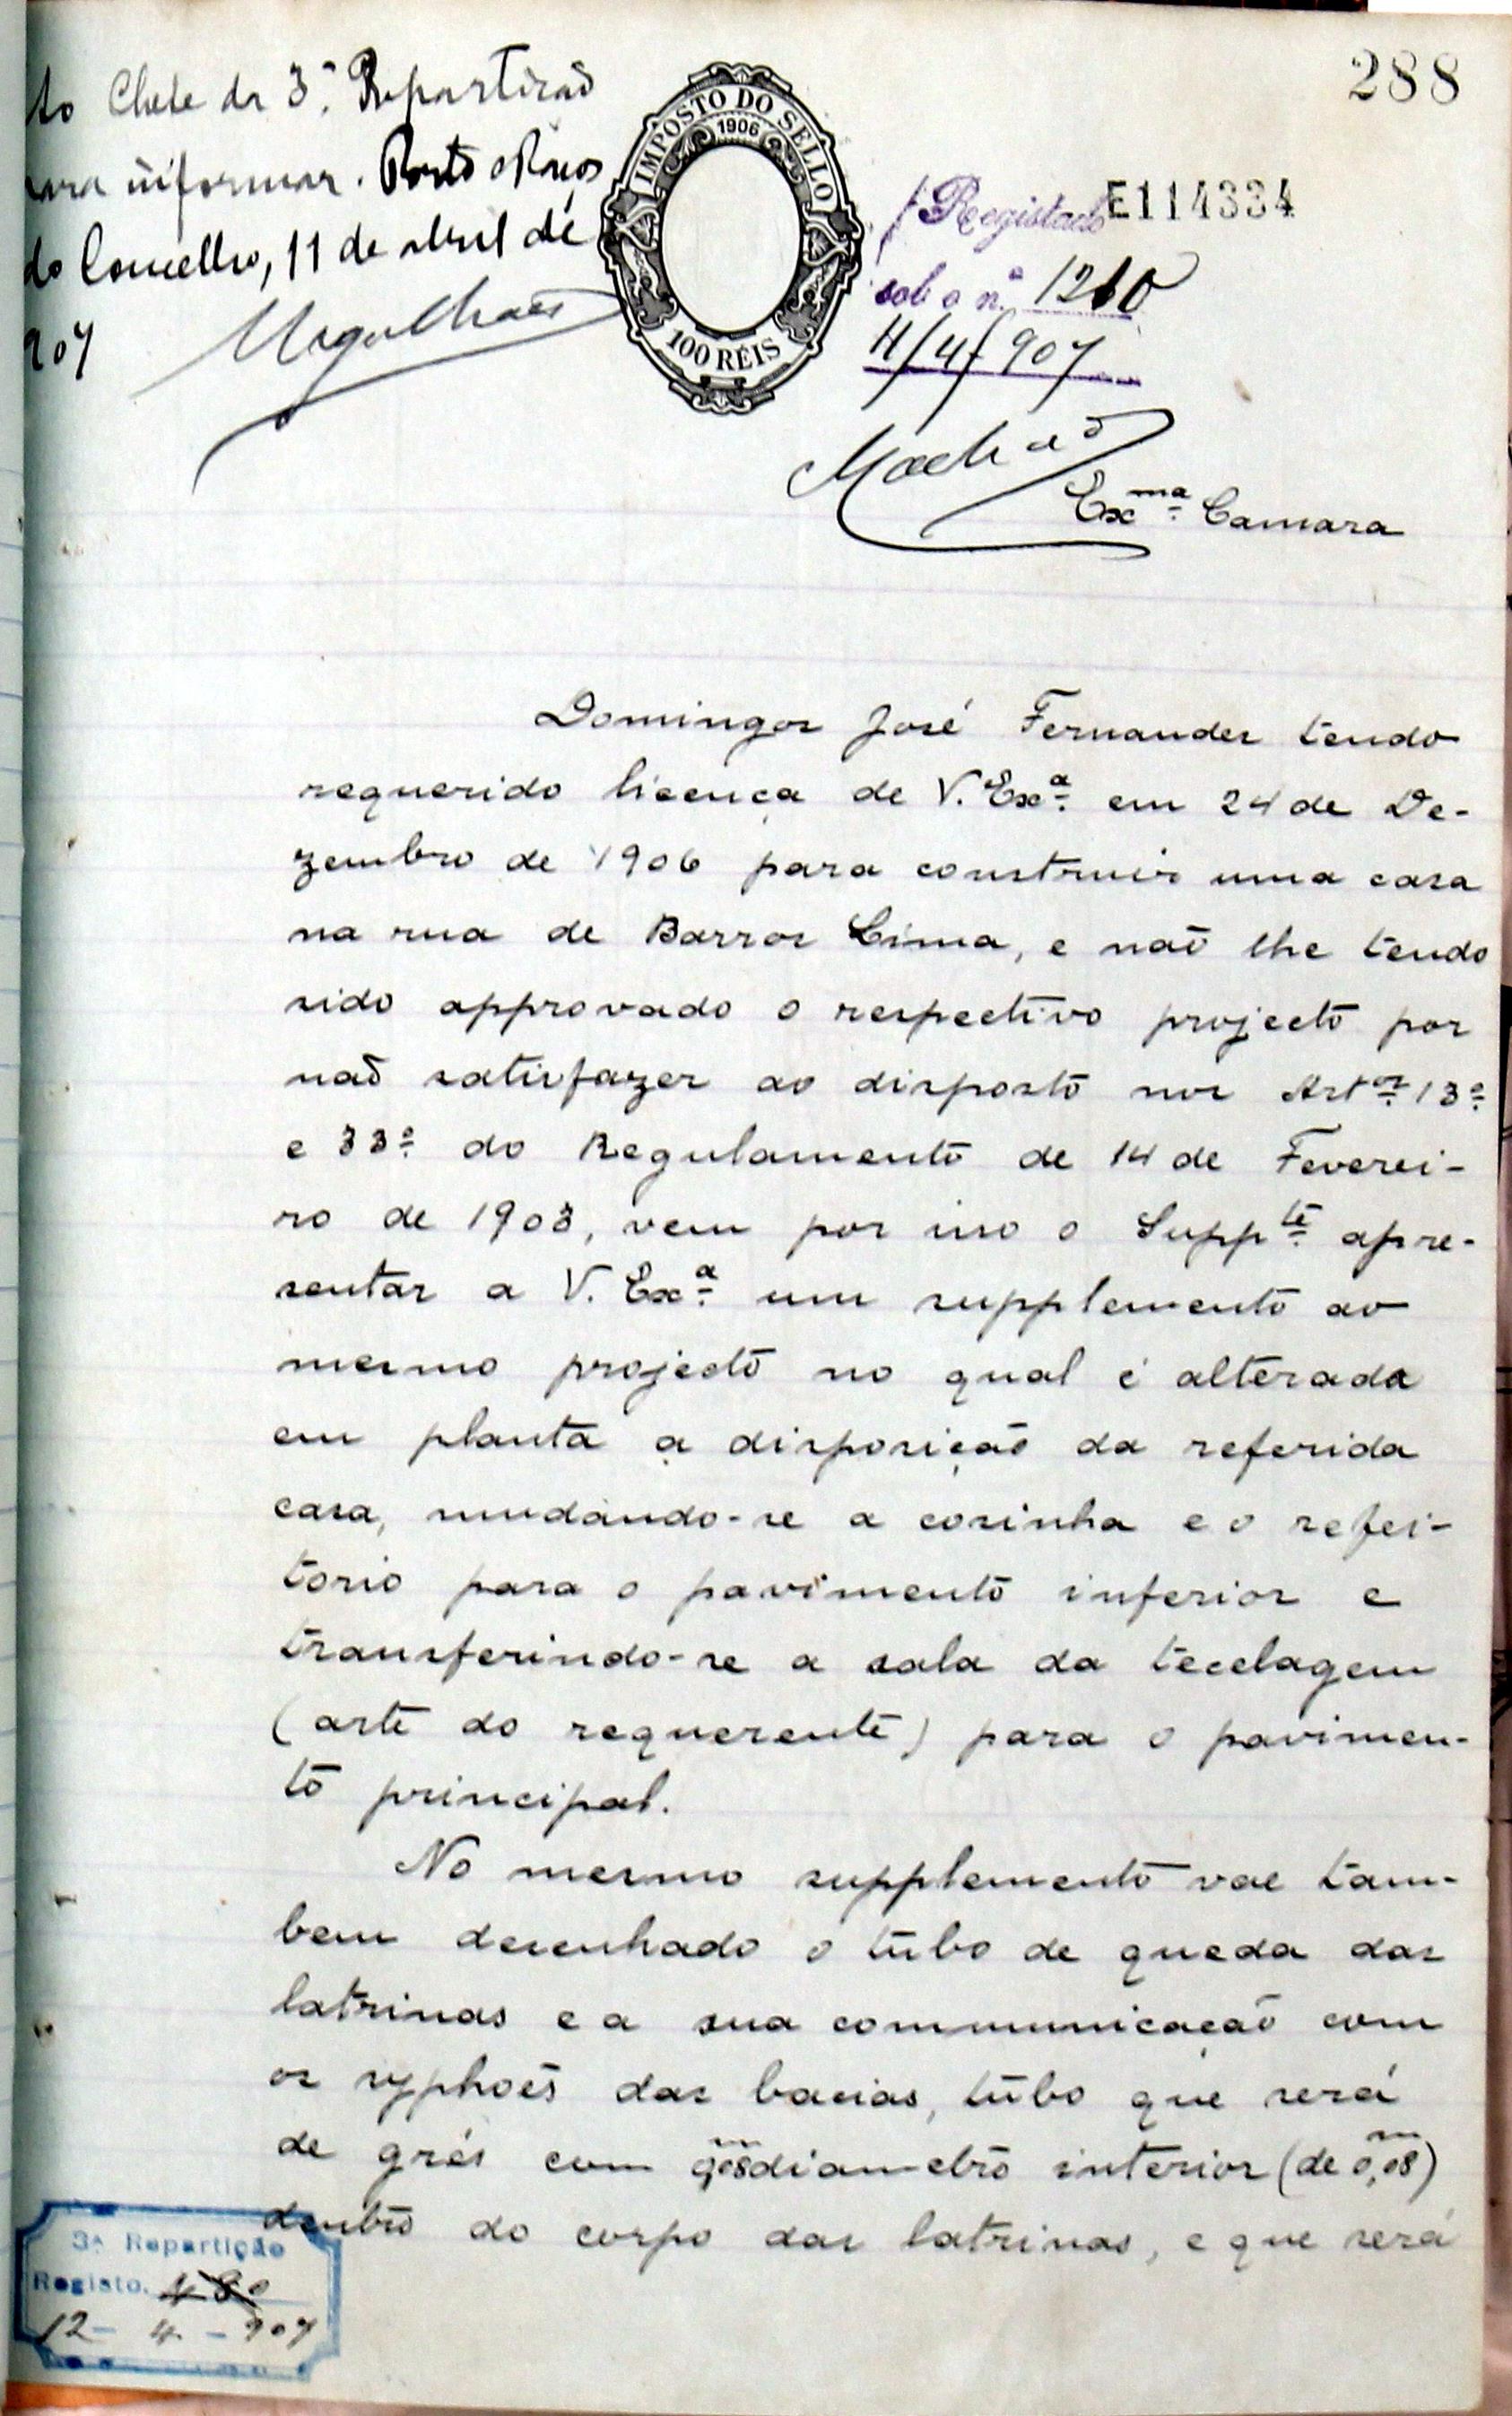 288
Ao Chefe da 3.ª Repartição
para informar. Porto e Paços
do Concelho, 11 de abril de
907
Magalhães
IMPOSTO DO SELLO
1906
100 RÉIS
E114334
Registado
sob o n.º 1210
11/4/907
Machado
Ex.ma Camara
Domingos José Fernandes tendo
requerido licença de V. Ex.ª em 24 de De-
zembro de 1906 para construir uma casa
na rua de Barros Lima, e não lhe tendo
sido approvado o respectivo projecto por
não satisfazer ao disposto nos Art.os 13.º
e 33.º do Regulamento de 14 de Feverei-
ro de 1903, vem por isso o Supp.te apre-
sentar a V. Ex.ª um supplemento ao
mesmo projecto no qual é alterada
em planta a disposição da referida
casa, mudando-se a cosinha e o refei-
torio para o pavimento inferior e
transferindo-se a sala da tecelagem
(arte do requerente) para o pavimen-
to principal.
No mesmo supplemento vae tam-
bem desenhado o tubo de queda das
latrinas e a sua communicação com
os syphões das bacias, tubo que será
de grés com 0,m08 diametro interior (de 0,m08)
dentro do corpo das latrinas, e que será
3ª Repartição
Registo. 480
12 - 4 - 907